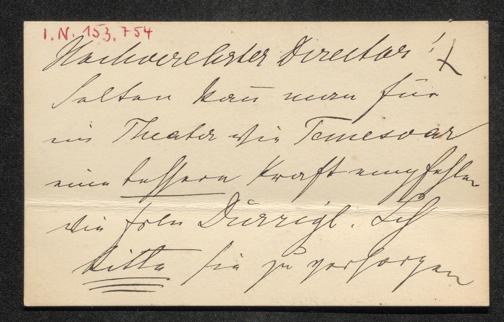 I.N. 153.754
Hochverehrter Director!
Selten kan̄ man für
ein Theater wie Temesvar
eine bessere Kraft empfehlen
wie Frln Durrigl. Ich
bitte sie zu versorgen